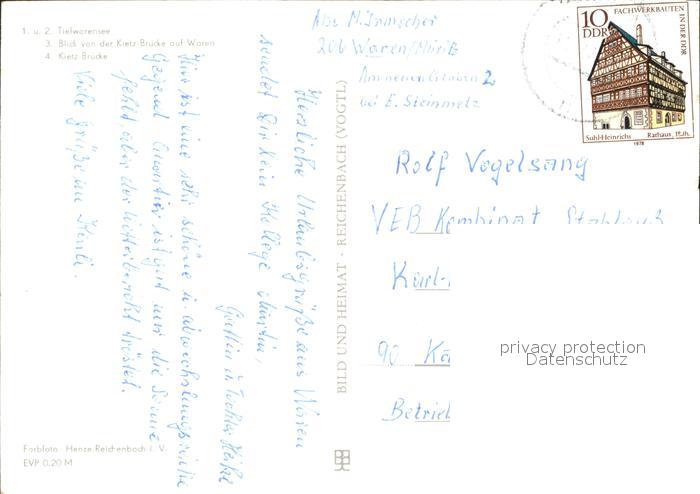 1. u. 2. Tiefwarensee
3. Blick von der Kietz-Brücke auf Waren
4. Kietz Brücke
Farbfoto: Henze Reichenbach i. V.
EVP 0.20 M
BILD UND HEIMAT · REICHENBACH (VOGTL)
Herzliche Urlaubsgrüße aus Waren
sendet Dir Dein Kollege Martin,
Gattin u. Tochter Heike
Hier ist eine sehr schöne u. abwechslungsreiche
Gegend. Quartier ist gut nur die Sonne
fehlt aber der Wetterbericht tröstet.
Viele Grüße an
Abs. M. Irmscher
206 Waren/Müritz
Am neuen Graben 2
bei E. Steinmetz
Rolf Vogelsang
VEB Kombinat Stahlbau
Karl-
90 Ka
Betriel
10
DDR
FACHWERKBAUTEN
IN DER DDR
Suhl-Heinrichs Rathaus, 15. Jh.
1978
privacy protection
Datenschutz